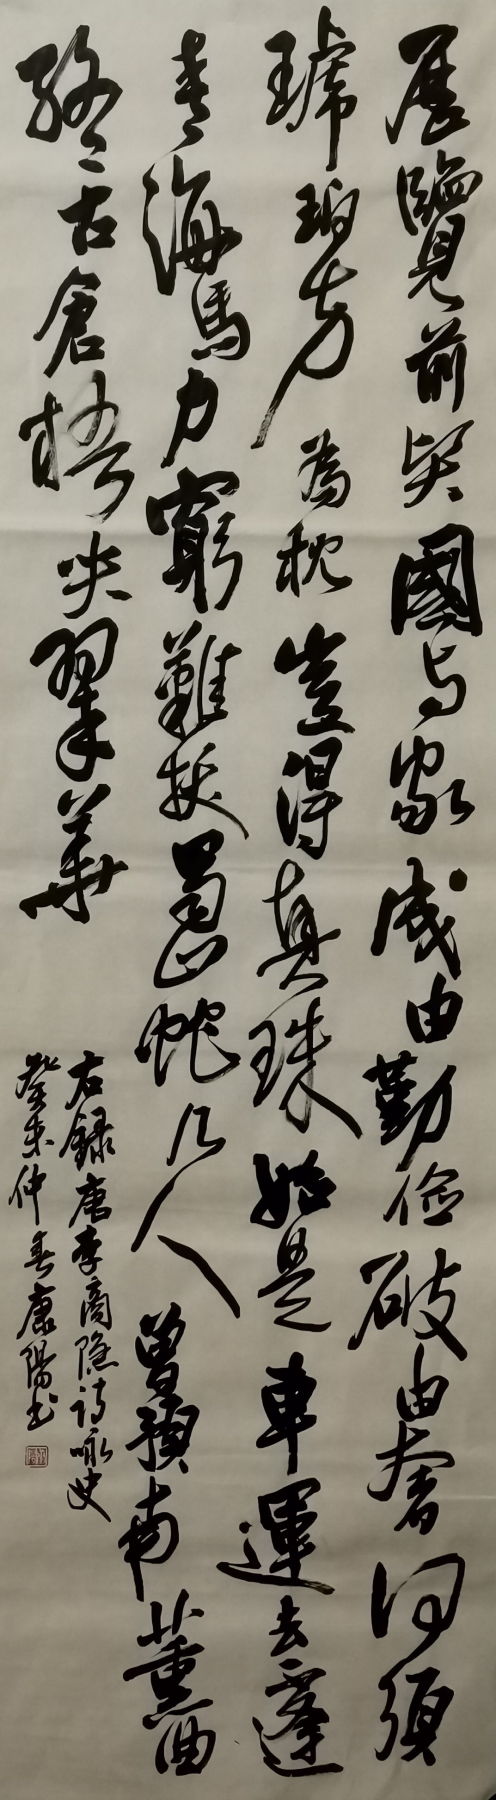 歷覽前賢國与家成由勤儉破由奢何須
琥珀方為枕豈得真珠始是車運去不逢
青海馬力窮難拔蜀山蛇几人曾預南薰曲
終古倉梧哭翠華
右錄唐李商隱詩咏史
癸未仲春康陽书